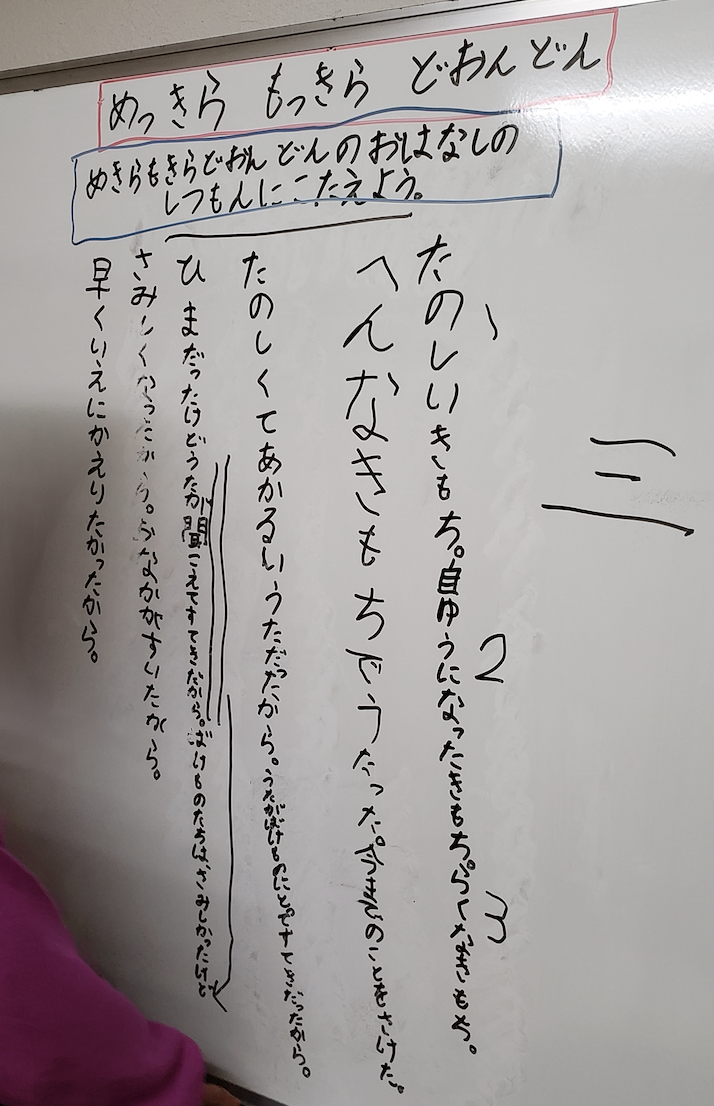 めっきら もっきら どおんどん
めきらもきらどおんどんのおはなしの
しつもんにこたえよう。
三
たのしいきもち。自ゆうになったきもち。らくなきもち。
2
3
へんなきもちでうたった。今までのことをさけた。
たのしくてあかるいうただったから。うたがばけものにとってすてきだったから。
ひまだったけどうたが聞こえてすてきだから。ばけものたちは、さみしかったけど
さみしくなったから。おなかがすいたから。
早くいえにかえりたかったから。